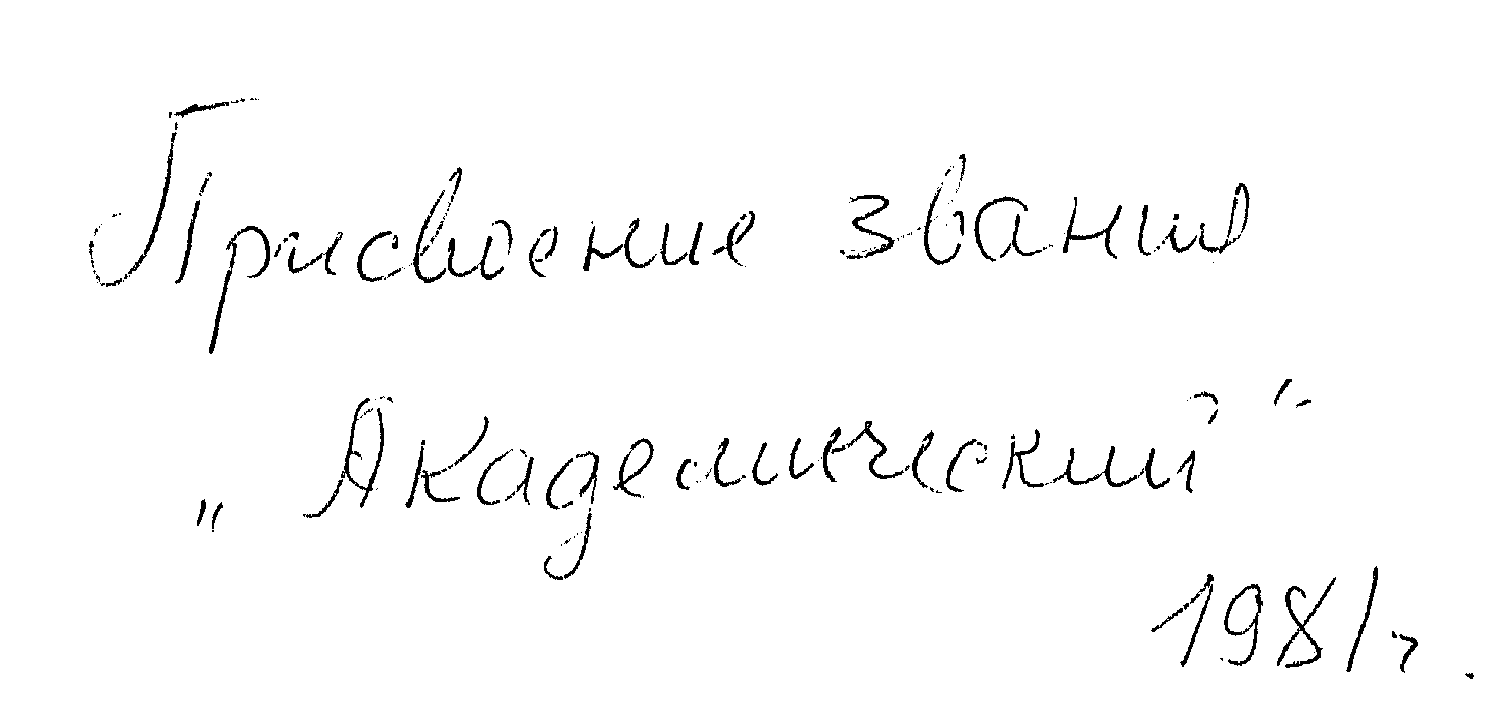 Присвоение звания
„Академический“
1981 г.